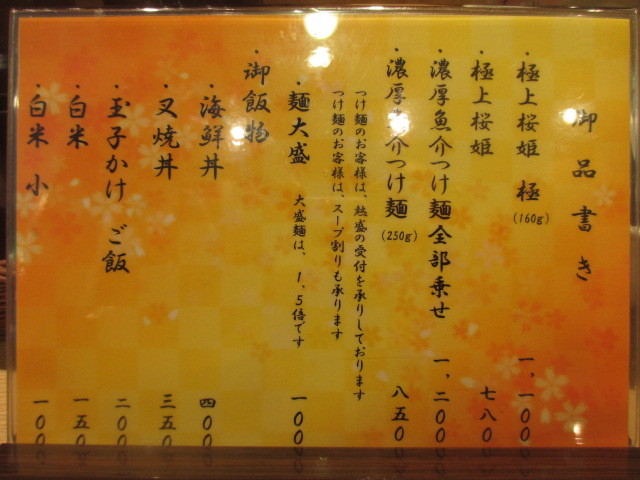 御品書き
・極上桜姫 極 (160g) 一、一00
・極上桜姫 七八0
・濃厚魚介つけ麺全部乗せ 一、二00
・濃厚魚介つけ麺 (250g) 八五0
つけ麺のお客様は、熱盛の受付を承りしております
つけ麺のお客様は、スープ割りも承ります
・麺大盛 大盛麺は、1,5倍です 一00
・御飯物
・海鮮丼 四00
・叉焼丼 三五0
・玉子かけご飯 二00
・白米 一五0
・白米 小 一00